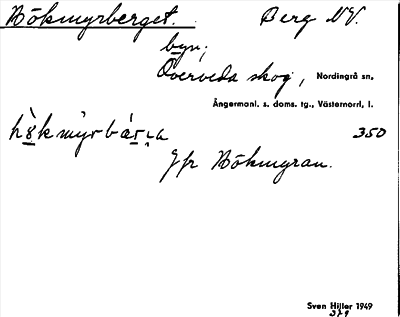 Hökmyrberget. Berg NV.
byn;
Överveda skog, Nordingrå sn,
Ångermanl. s. doms. tg., Västernorrl. l.
350
Jfr Hökmyran.
Sven Hiller 1949
379